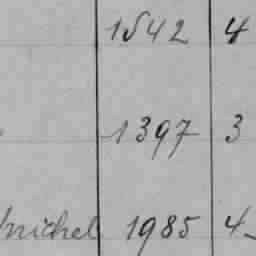 1542 4
1397 3
michel 1985 4